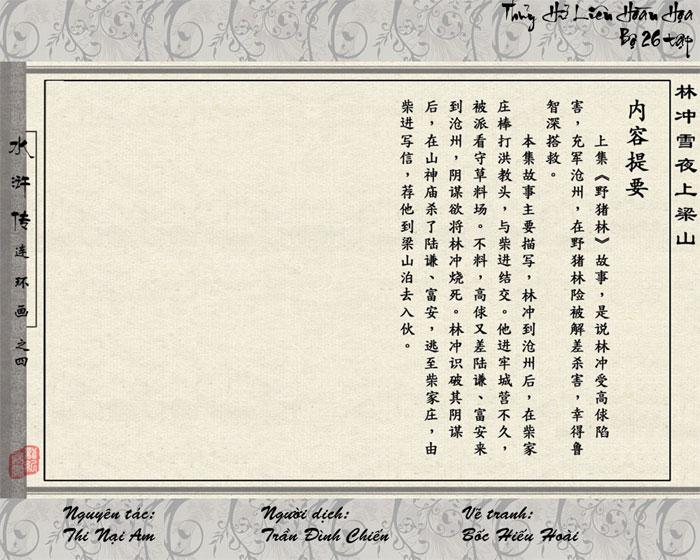 Thủy Hử Liên Hoàn Họa
Bộ 26 tập
林冲雪夜上梁山
内容提要
上集《野猪林》故事，是说林冲受高俅陷
害，充军沧州，在野猪林险被解差杀害，幸得鲁
智深搭救。
本集故事主要描写，林冲到沧州后，在柴家
庄棒打洪教头，与柴进结交。他进牢城营不久，
被派看守草料场。不料，高俅又差陆谦、富安来
到沧州，阴谋欲将林冲烧死。林冲识破其阴谋
后，在山神庙杀了陆谦、富安，逃至柴家庄，由
柴进写信，荐他到梁山泊去入伙。
水浒传连环画之四
Nguyên tác:
Thi Nại Am
Người dịch:
Trần Đình Chiến
Vẽ tranh:
Bốc Hiếu Hoài